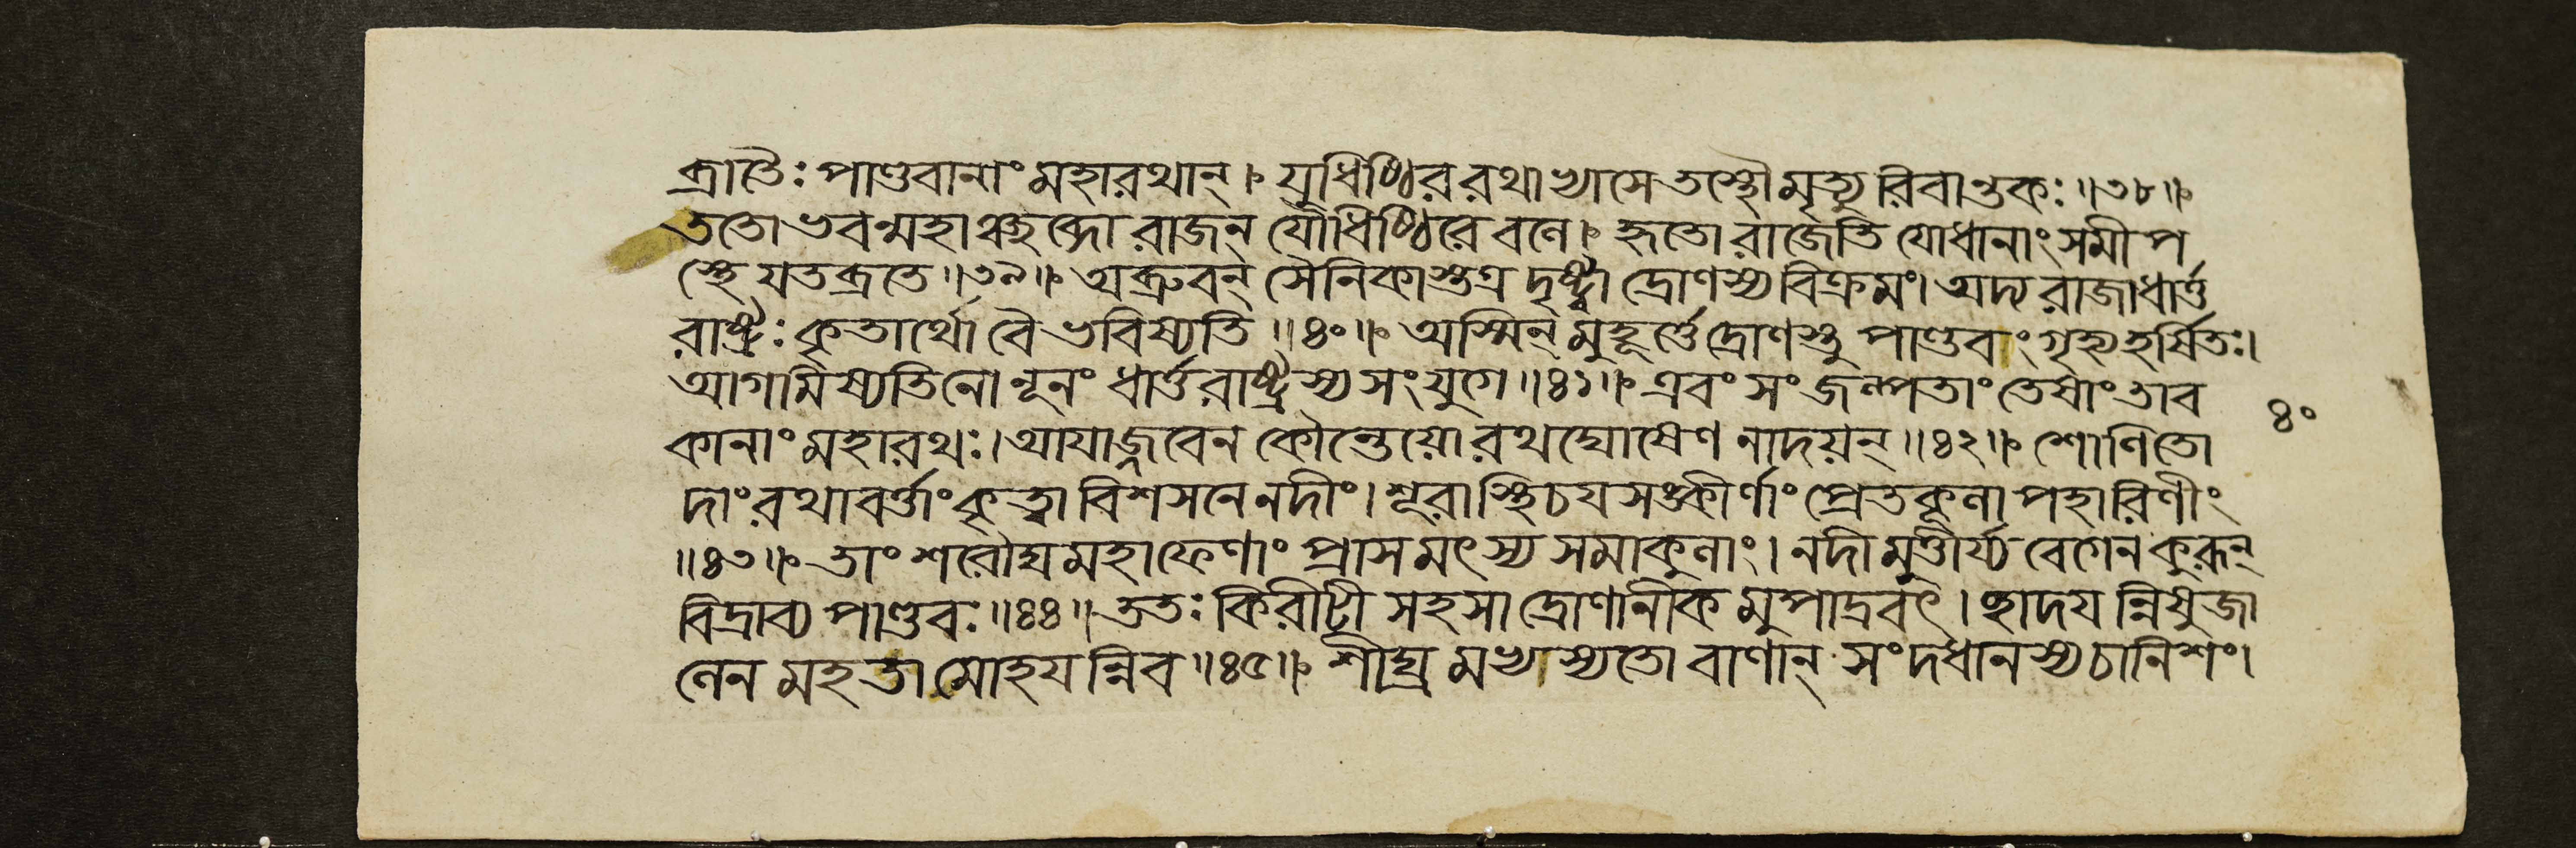 ব্রাতৈঃ পাণ্ডবানাং মহারথান্। যুধিষ্ঠিররথাখ্যাসে তস্থৌ মৃত্যুরিবান্তকঃ॥৩৮॥
ততোভবন্মহাঞ্ছব্দো রাজন্ যৌধিষ্ঠিরে বলে। হৃতো রাজেতি যোধানাং সমীপ
স্থে যতব্রতে॥৩৯॥ অব্রুবন্ সৈনিকাস্তত্র দৃষ্ট্বা দ্রোণস্য বিক্রমং। অদ্য রাজা ধার্ত্ত
রাষ্ট্রঃ কৃতার্থো বৈ ভবিষ্যতি॥৪০॥ অস্মিন্ মুহূর্ত্তে দ্রোণস্তু পাণ্ডবাং গৃহ্য হর্ষিতঃ।
আগামিষ্যতি নো নূনং ধার্ত্তরাষ্ট্রস্য সংযুগে॥৪১॥ এবং সংজল্পতাং তেষাং তাব
কানাং মহারথঃ। আযাজ্জবেন কৌন্তেয়ো রথঘোষেণ নাদয়ন্॥৪২॥ শোণিতো
দাং রথাবর্ত্তাং কৃত্বা বিশসনে নদীং। শূরাস্থিচয়সঙ্কীর্ণাং প্রেতকূলাপহারিণীং
॥৪৩॥ তাং শরৌঘমহাফেণাং প্রাসমৎস্যসমাকুলাং। নদীমুত্তীর্য্য বেগেন কুরূন্
বিদ্রাব্য পাণ্ডবঃ॥৪৪॥ ততঃ কিরীটী সহসা দ্রোণানীকমুপাদ্রবৎ। ছাদয়ন্নিষুজা
লেন মহতা মোহয়ন্নিব॥৪৫॥ শীঘ্রমখ্যস্যতো বাণান্ সংদধানস্য চানিশং।
৪০